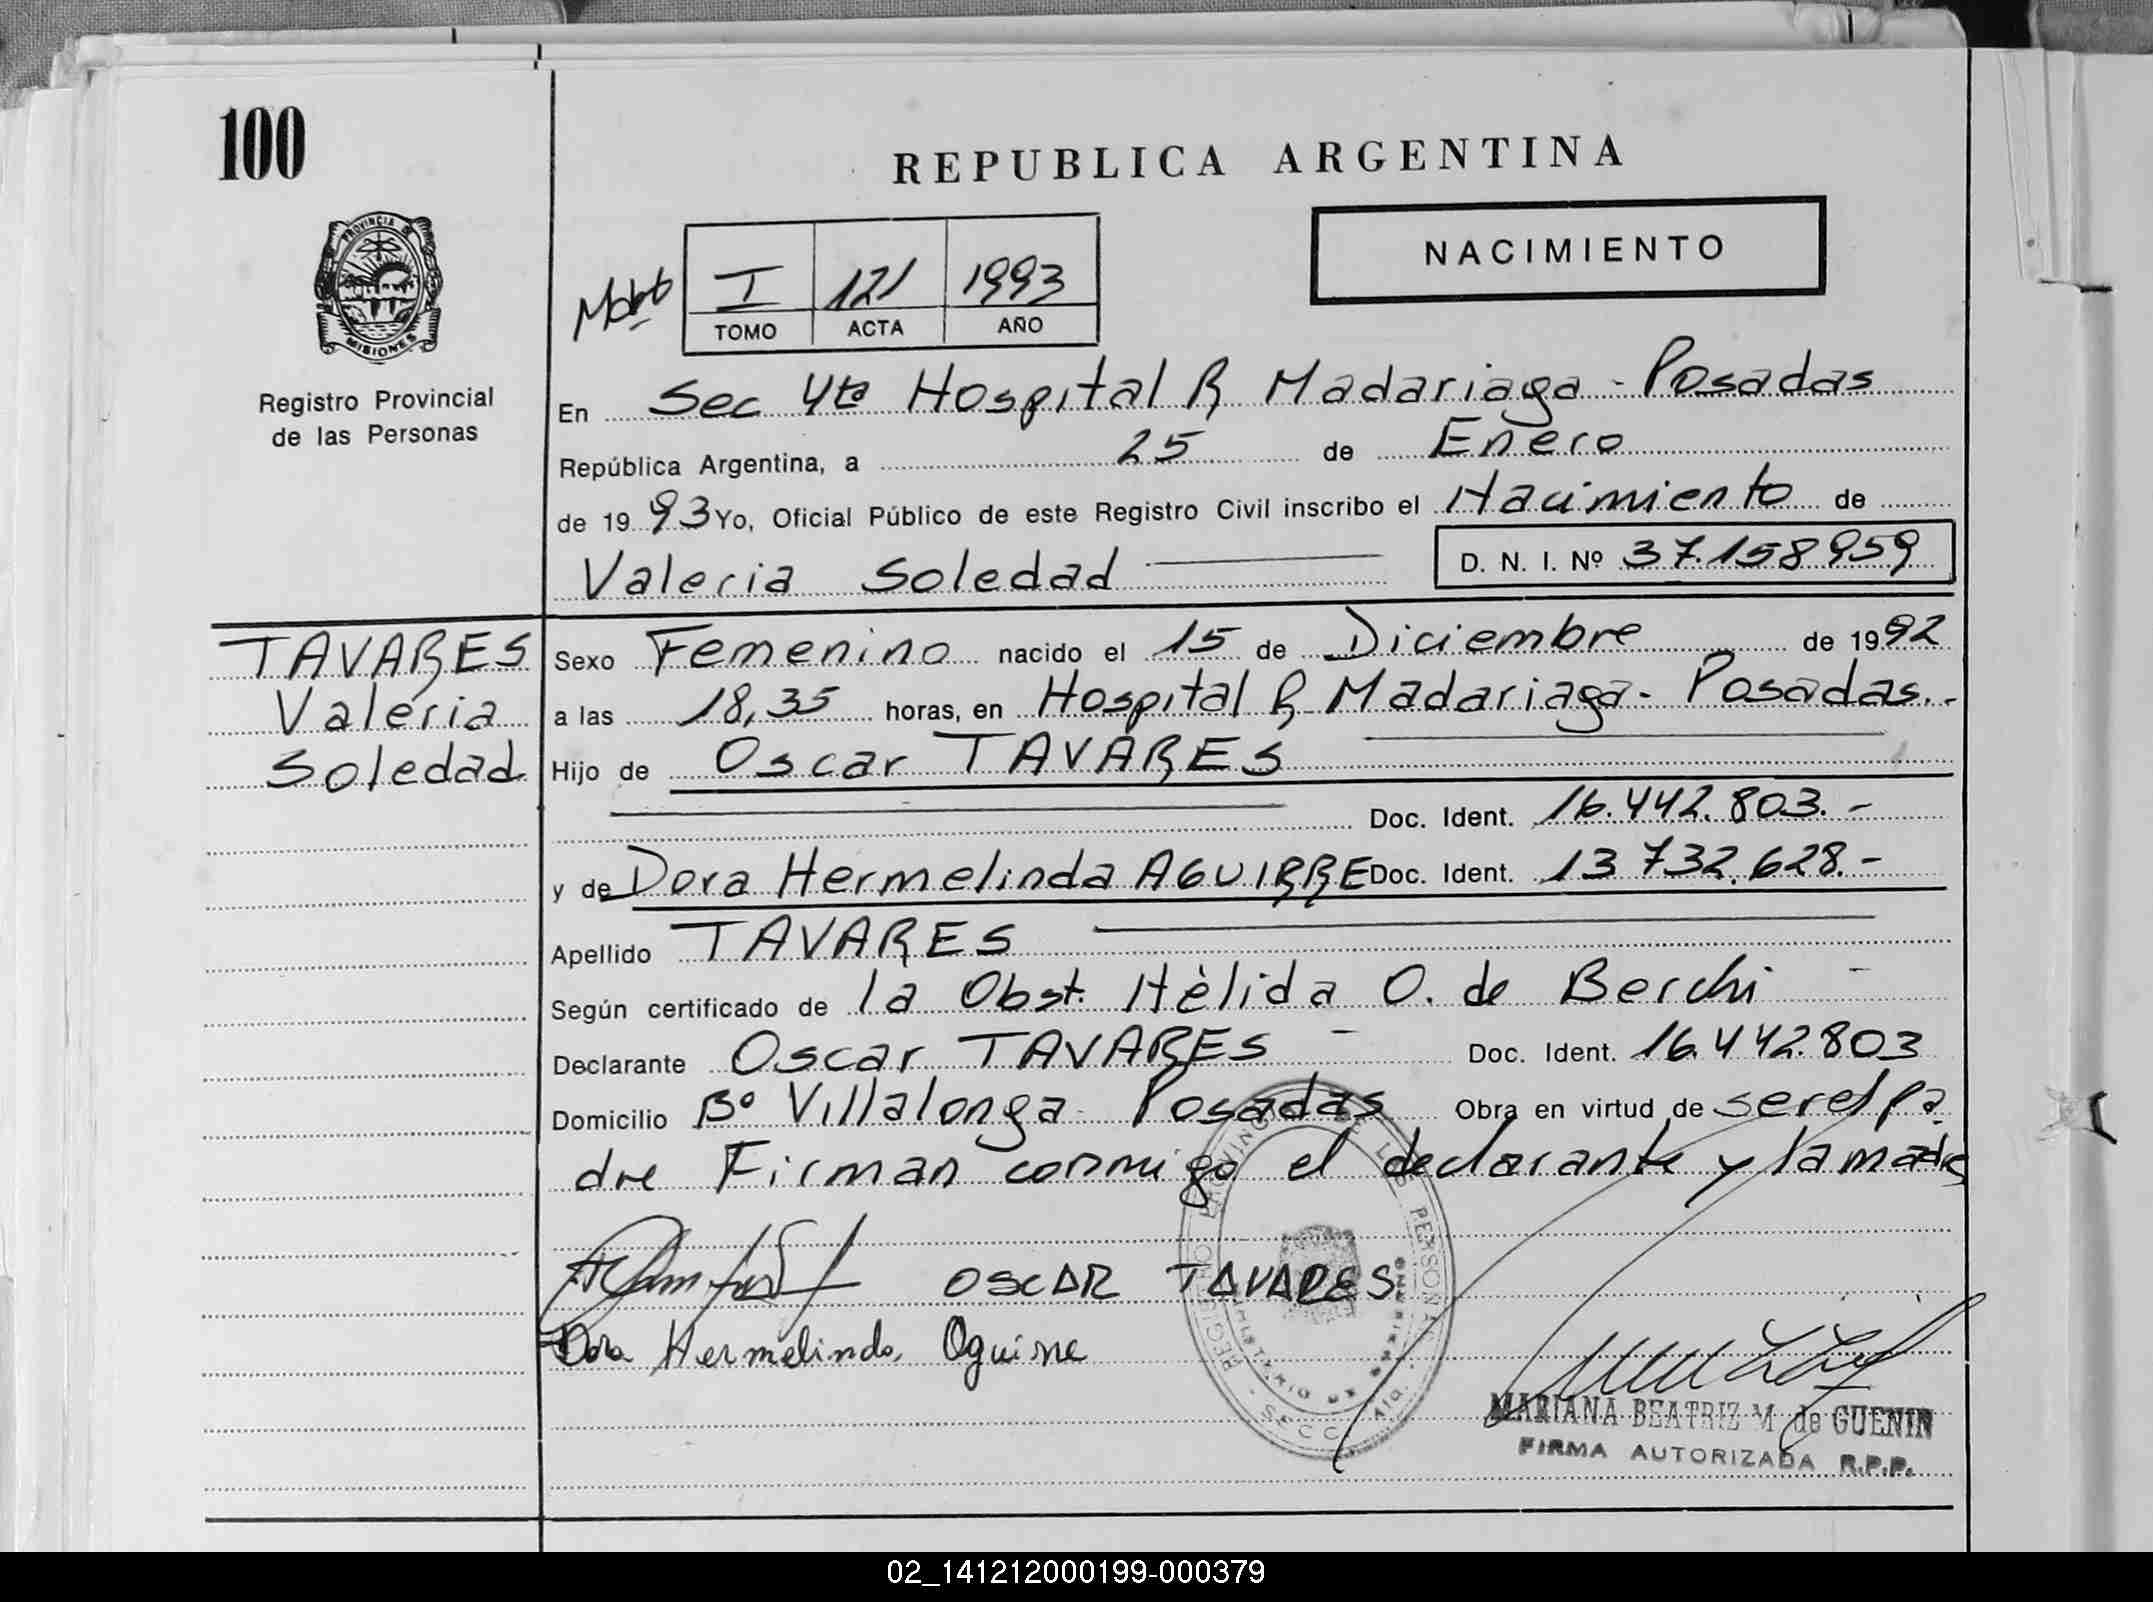 100
REPUBLICA ARGENTINA
NACIMIENTO
PROVINCIA DE
MISIONES
Registro Provincial
de las Personas
I 121 1993
TOMO ACTA AÑO
En Sec 4ta Hospital R Madariaga - Posadas
República Argentina, a 25 de Enero
de 1993 Yo, Oficial Público de este Registro Civil inscribo el Nacimiento de
Valeria Soledad D. N. I. Nº 37.158959
TAVARES
Valeria
Soledad
Sexo Femenino nacido el 15 de Diciembre de 1992
a las 18,35 horas, en Hospital R Madariaga - Posadas.-
Hijo de Oscar TAVARES
Doc. Ident. 16.442.803.-
y de Dora Hermelinda AGUIRRE Doc. Ident. 13 732.628.-
Apellido TAVARES
Según certificado de la Obst. Hèlida O. de Berchi -
Declarante Oscar TAVARES - Doc. Ident. 16.442.803
Domicilio Bº Villalonga Posadas Obra en virtud de ser el pa
dre Firman conmigo el declarante y la madre
OSCAR TAVARES
Dora Hermelinda Aguirre
REGISTRO PROVINCIAL DE LAS PERSONAS
MINISTERIO DE GOBIERNO
SECC.
MARIANA BEATRIZ M de GUENIN
FIRMA AUTORIZADA R.P.P.
02_141212000199-000379